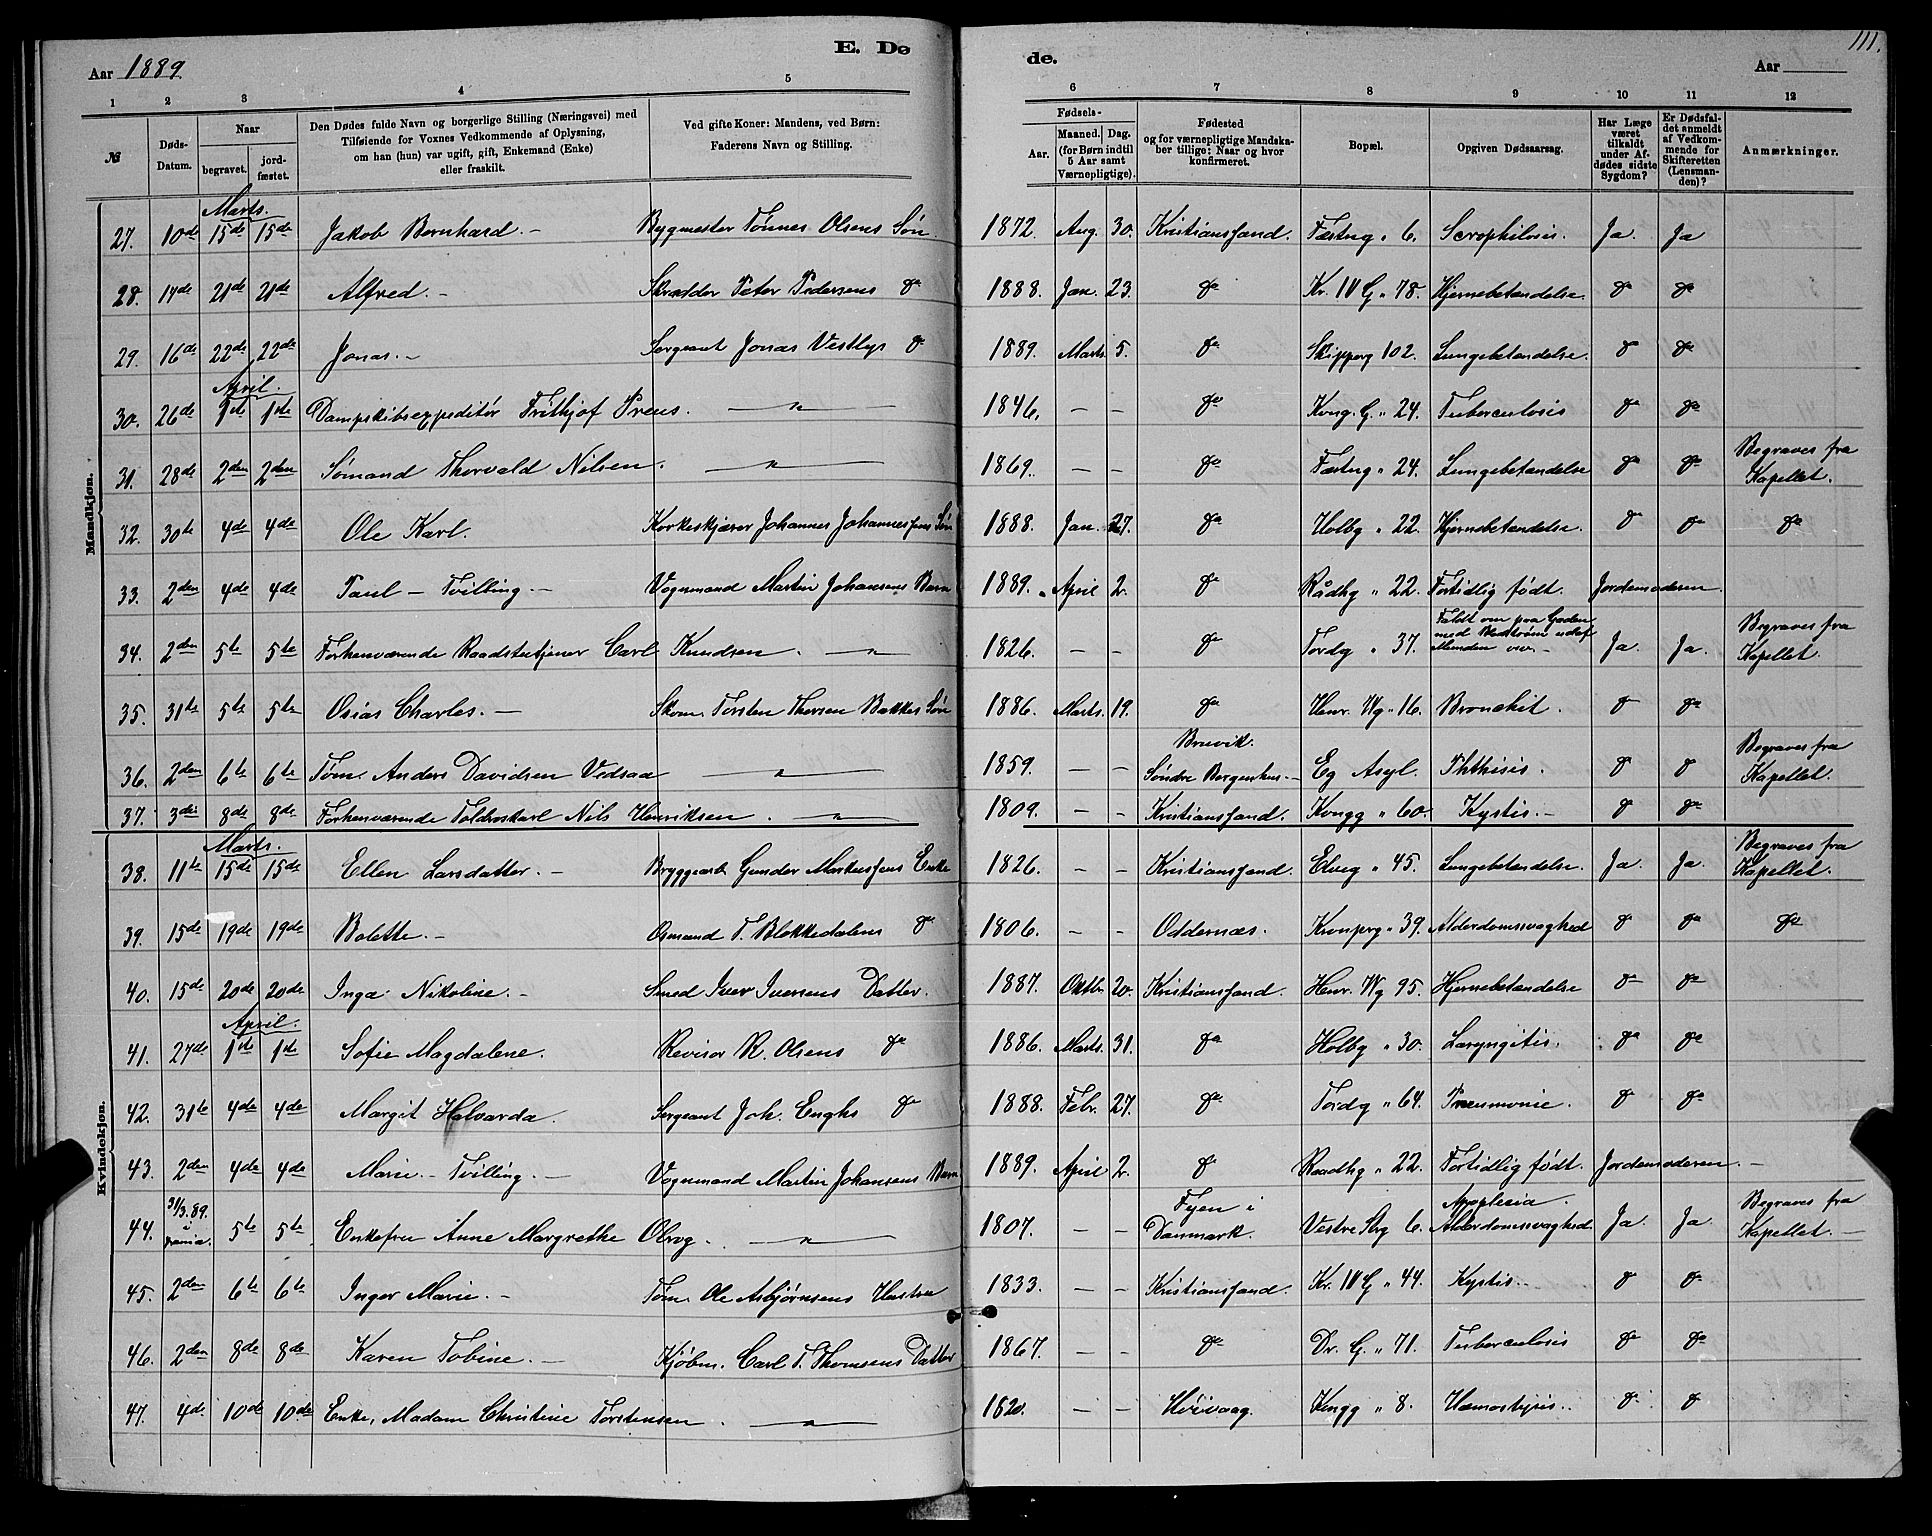 E. Døde.
111.
Aar 1889
Aar
1 2 3 4 5 6 7 8 9 10 11 12
№ Døds-Datum. Naar begravet. jordfæstet. Den Dødes fulde Navn og borgerlige Stilling (Næringsvei) med Tilføiende for Voxnes Vedkommende af Oplysning, om han (hun) var ugift, gift, Enkemand (Enke) eller fraskilt. Ved gifte Koner: Mandens, ved Børn: Faderens Navn og Stilling. Fødsels- Aar. Maaned. Dag. (for Børn indtil 5 Aar samt Værnepligtige). Fødested og for værnepligtige Mandskaber tillige: Naar og hvor konfirmeret. Bopæl. Opgiven Dødsaarsag. Har Læge været tilkaldt under Afdødes sidste Sygdom? Er Dødsfaldet anmeldt af Vedkommende for Skifteretten (Lensmanden)? Anmærkninger.
Mandkjøn.
Marts.
27. 10de 15de 15de Jakob Bernhard. – Bygmester Tønnes Olsens Søn. 1872. Aug. 30. Kristianssand. Fæstng " 6. Scrophilosis. Ja. Ja
28. 17de 21de 21de Alfred. – Skrædder Peter Pedersens do 1888. Jan. 23. do Kr. IV G " 78. Hjernebetændelse. do do
29. 16de 22de 22de Jonas. – Sergeant Jonas Vestbys do 1889. Marts. 5. do Skipperg 102. Lungebetændelse. do do
April.
30. 26de 1ste 1ste Dampskibsexpeditør Frithjof Preus. – " – 1846. – – do Kong. G. " 24. Tuberculosis do do
31. 28de 2den 2den Sømand Thorvald Nilsen. – " – 1869. – – do Fæstng " 24. Lungebetændelse do do Begraves fra Kapellet.
32. 30te 4de 4de Ole Karl. Korkeskjærer Johannes Johannessens Søn 1888. Jan. 27. do Holbg " 22. Hjernebetændelse. do do do
33. 2den 4de 4de Paul – Tvilling. – Vognmand Martin Johansens Barn 1889. April 2. do Rådhg " 22. Fortidlig født. Jordemoderen.
34. 2den 5te 5te Forhenværende Raadstutjener Carl Knudsen. – " – 1826. – – do Tordg " 37. Faldt om paa Gaden med Blodstrøm ud af Munden Ja. Ja. Begraves fra Kapellet.
35. 31te 5te 5te Osias Charles. – Skom. Torsten Thorsen Bakkes Søn 1886. Marts. 19. do Henr. Wg " 16. Bronchit. do do
36. 2den 6te 6te Tøm. Anders Davidsen Vedsaa – " – 1859. – – Bruvik. Søndre Bergenhus. – Eg Asyl. Phthisis. do do Begraves fra Kapellet.
37. 3die 8de 8de Forhenværende Toldroskarl Nils Henriksen. – " – 1809. – – Kristianssand. Kongg " 60. Kystis. – do do
Kvindekjøn.
Marts.
38. 11te 15de 15de Ellen Larsdatter. – Bryggearb. Gunder Markussens Enke 1826. – – Kristianssand. Elveg " 45. Lungebetændelse. Ja. Ja. Begraves fra Kapellet.
39. 15de 19de 19de Bolette. – Osmand T. Blokkedalens do 1806. – – Oddernæs. Kronprg " 39. Alderdomssvaghed do do do
40. 15de 20de 20de Inga Nikoline. – Smed Iver Iversens Datter. 1887. Oktbr. 20. Kristianssand. Henr. Wg 95. Hjernebetændelse do do
April.
41. 27de 1ste 1ste Sofie Magdalene. Revisor R. Olsens do 1886. Marts. 31. do Holbg " 30. Laryngitis. do do
42. 31te 4de 4de Margit Halvarda. Sergeant Joh. Enghs do 1888. Febr. 27. do Tordg " 64. Pneumonie. do do
43. 2den 4de 4de Marie – Tvilling. – Vognmand Martin Johansens Barn 1889. April 2. do Raadhg " 22. Fortidlig født. Jordemoderen. –
44. 31/3.89. i 5te 5te Enkefru Anne Margrethe Olrog. – " – 1807. – – Fyen i Danmark. Vestre Strg 6. Apoplexia. Alderdomssvaghed Ja. Ja. Begraves fra Kapellet. –
45. 2den 6te 6te Inger Marie. – Tøm. Ole Asbjørnsens Hustru 1833. – – Kristianssand. Kr. IV G " 44. Kystis. – do do
46. 2den 8de 8de Karen Tobine. – Kjøbm. Carl T. Thomsens Datter 1867. – – do Dr. G. " 71. Tuberculosis do do
47. 4de 10de 10de Enke, Madam Christine Torstensen. – " – 1820. – – Høivaag. Kongg " 8. Hæmostysis. do do